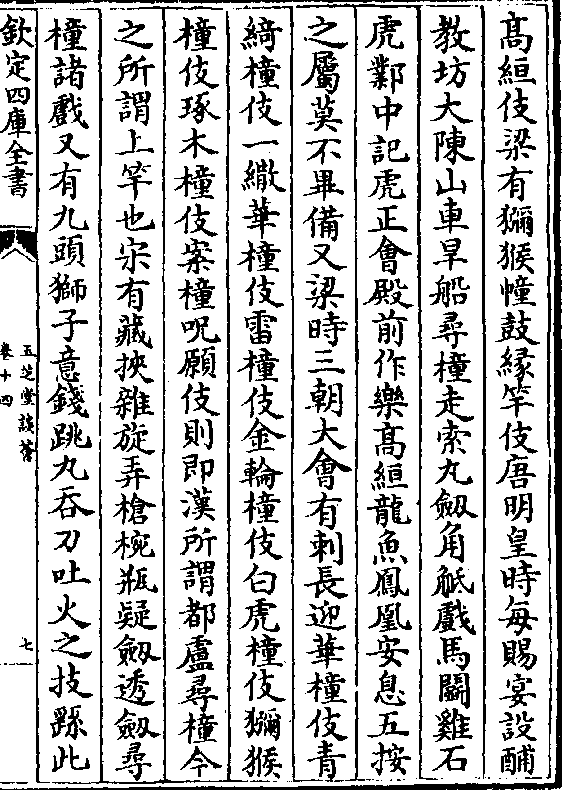 高絙伎梁有獼猴幢鼓緣竿伎唐明皇時每賜宴設酺
教坊大陳山車旱船尋橦走索九劔角觝戲馬鬬雞石
虎鄴中記虎正會殿前作樂高絙龍魚鳳凰安息五按
之屬莫不畢備又梁時三朝大會有刺長迎華橦伎青
綺橦伎一繖華橦伎雷橦伎金輪橦伎白虎橦伎獼猴
橦伎琢木橦伎案橦呪願伎則即漢所謂都盧尋橦今
之所謂上竿也宋有藏挾雜旋弄槍椀瓶疑劔透劔尋
橦諸戲又有九頭獅子意錢跳丸吞刀吐火之技繇此
欽定四庫全書
五芝堂談薈
卷十四
七